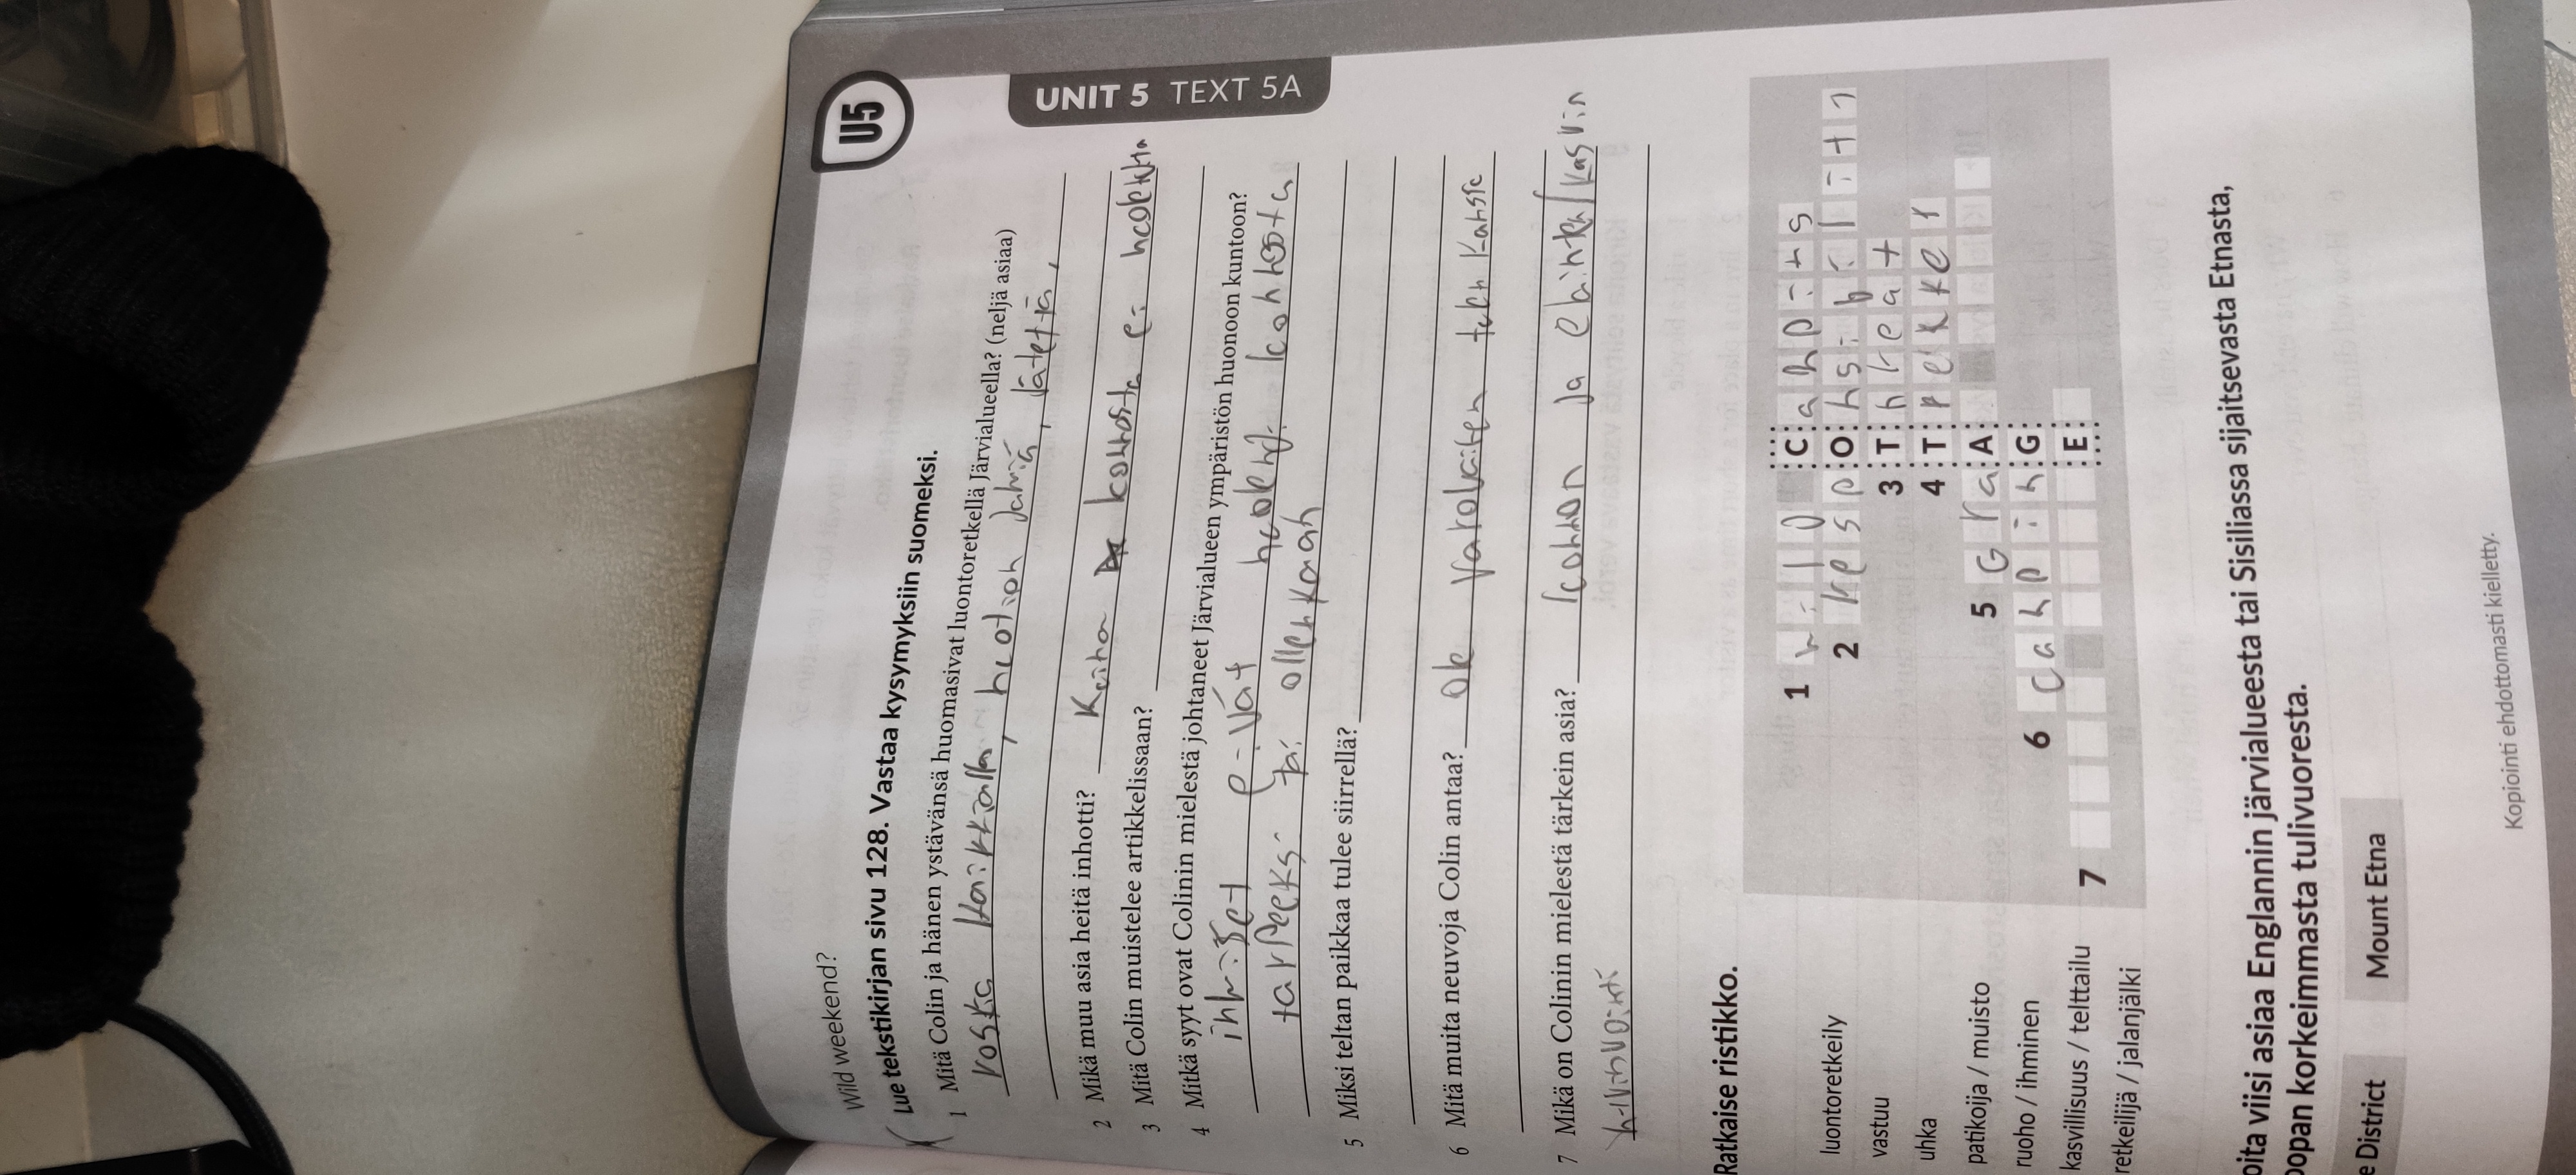 Wild weekend?
U5
UNIT 5 TEXT 5A
Lue tekstikirjan sivu 128. Vastaa kysymyksiin suomeksi.
1 Mitä Colin ja hänen ystävänsä huomasivat luontoretkellä Järvialueella? (neljä asiaa)
roska kaikkialla, nuotion jämiä, jätettä,
2 Mikä muu asia heitä inhotti?
3 Mitä Colin muistelee artikkelissaan?
4 Mitkä syyt ovat Colinin mielestä johtaneet Järvialueen ympäristön huonoon kuntoon?
ihmiset eivät
tarpeeksi tai ollenkaan
5 Miksi teltan paikkaa tulee siirrellä?
6 Mitä muita neuvoja Colin antaa? ole varovainen tulen kanssa
7 Mikä on Colinin mielestä tärkein asia? luonnon ja eläinten/kasvin
hyvinvointi
Ratkaise ristikko.
luontoretkeily
vastuu
uhka
patikoija / muisto
ruoho / ihminen
kasvillisuus / telttailu
retkeilijä / jalanjälki
1 wild Camping
2 respOnsibility
3 Threat
4 Trekker
5 GraA
6 campinG
7 E
oita viisi asiaa Englannin järvialueesta tai Sisiliassa sijaitsevasta Etnasta,
oopan korkeimmasta tulivuoresta.
e District
Mount Etna
Kopiointi ehdottomasti kielletty.